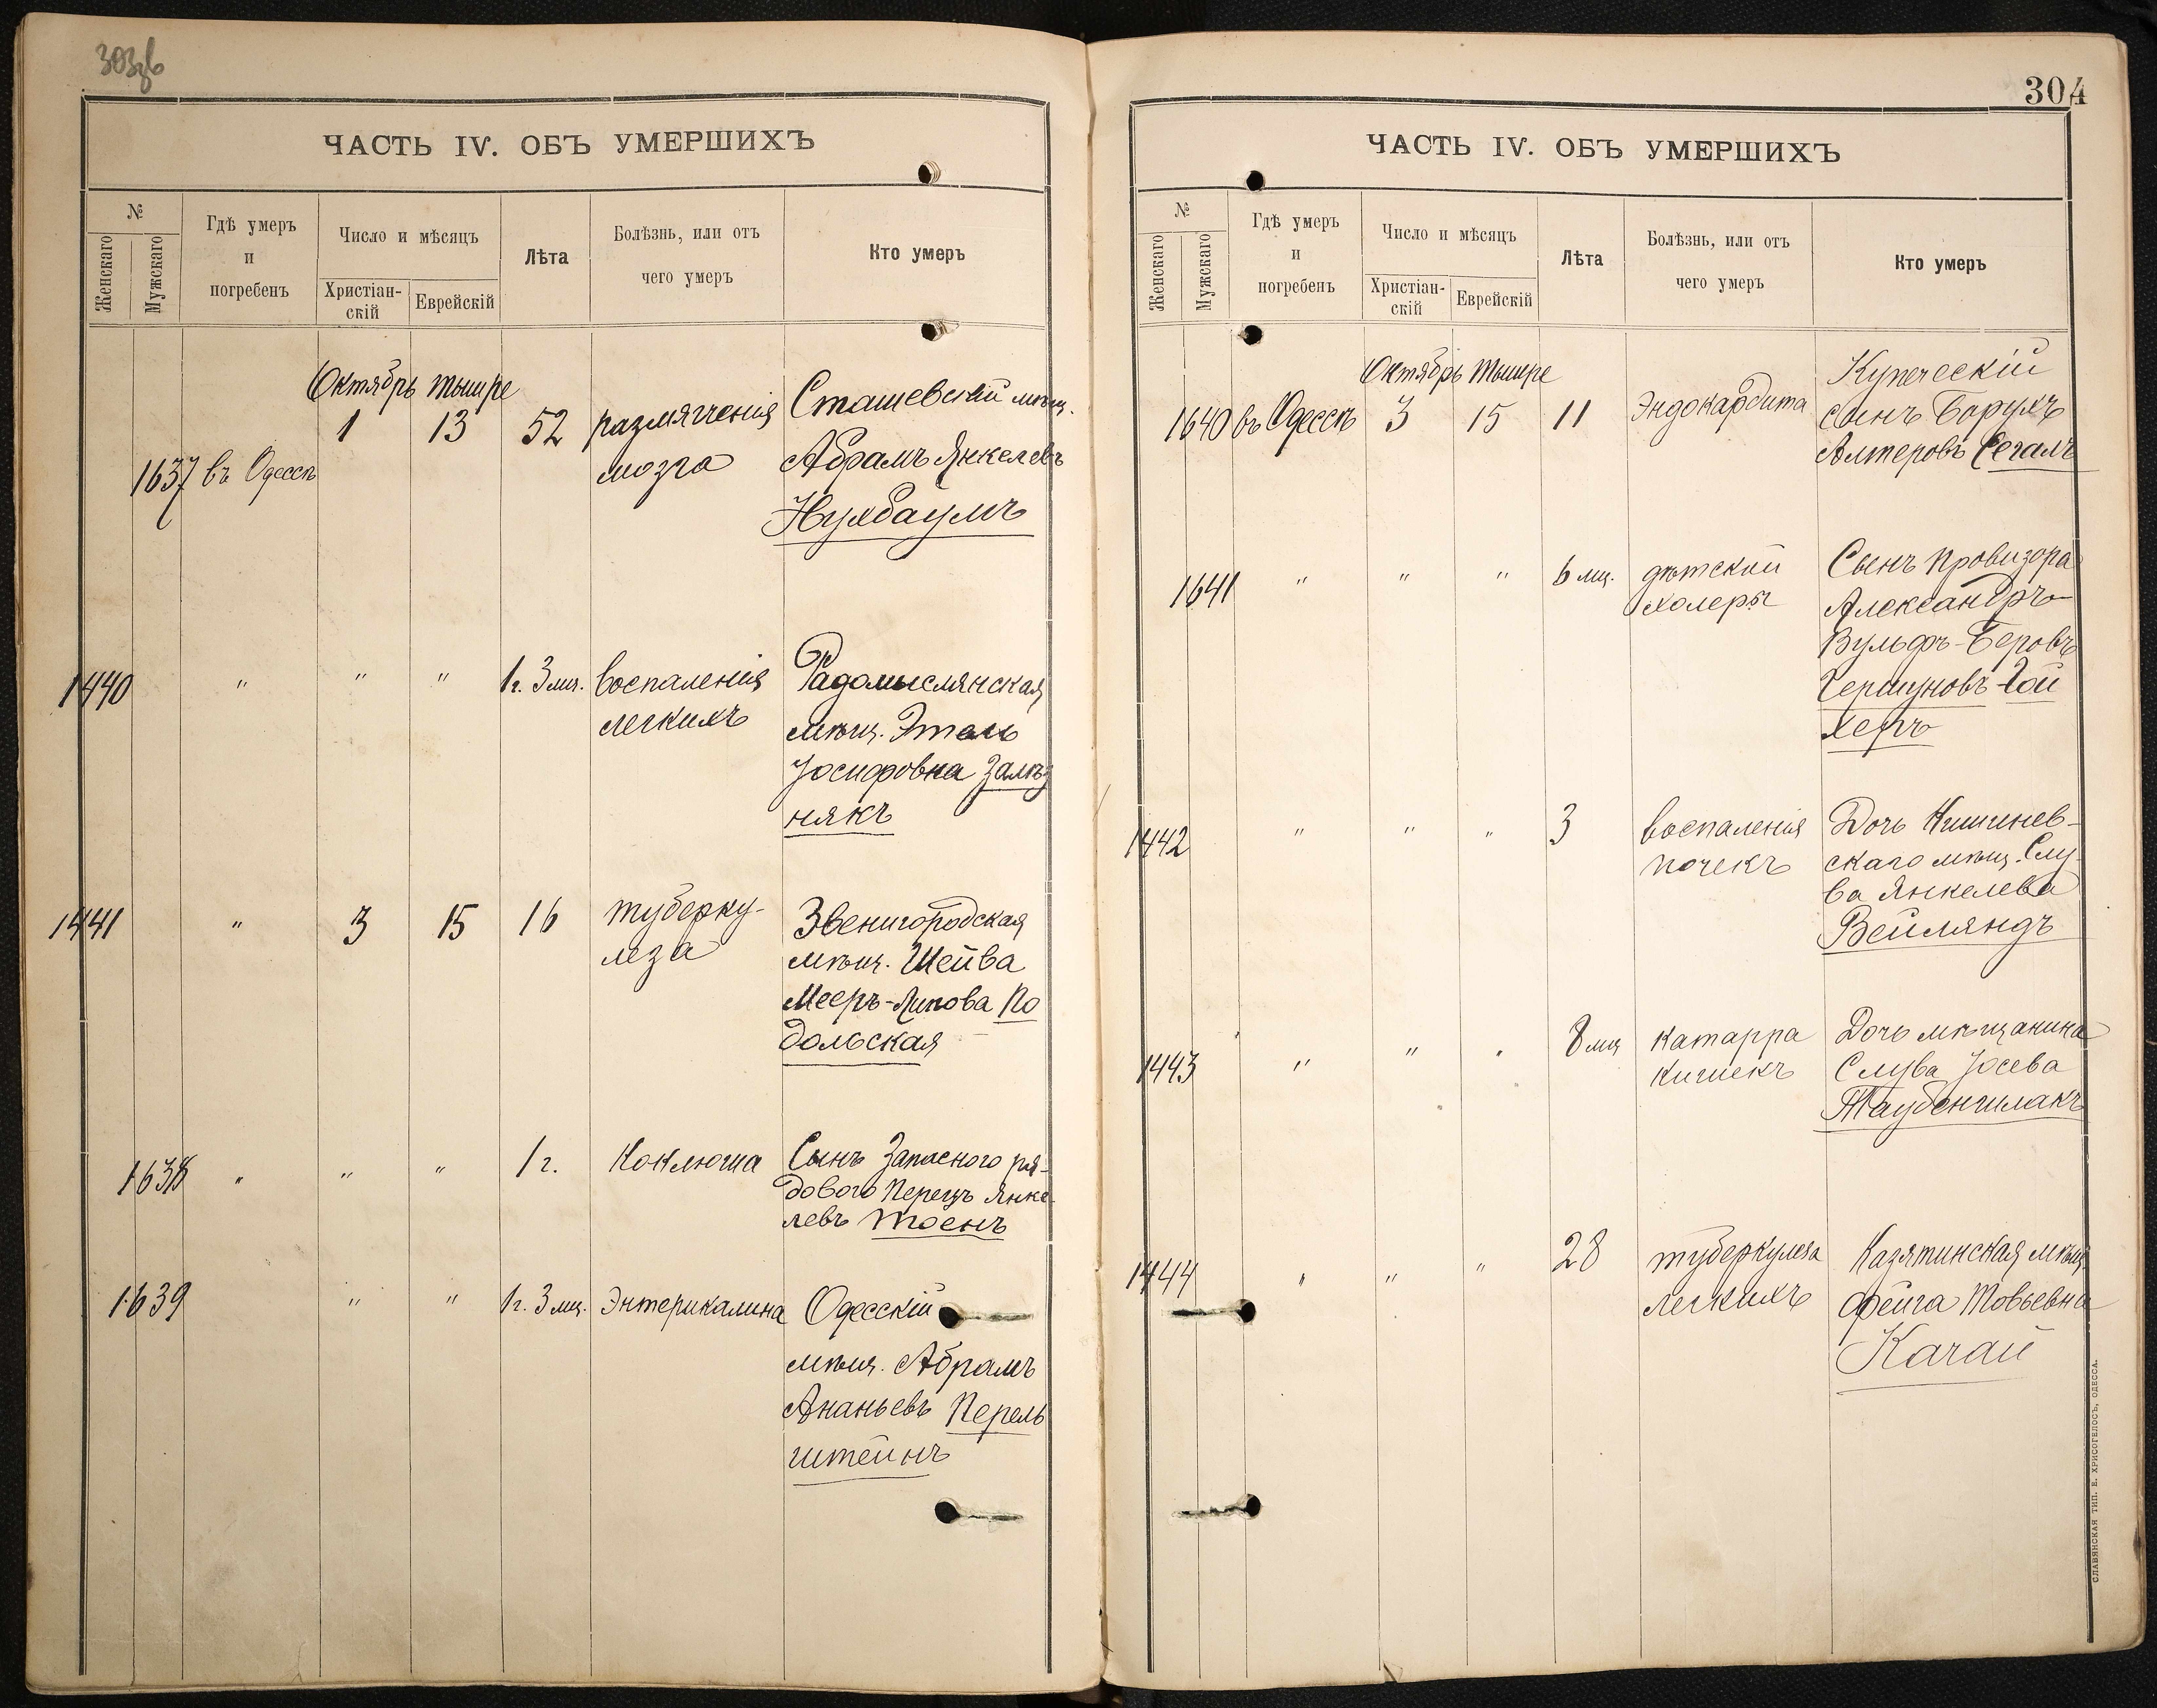 303 зв
ЧАСТЬ IV. ОБЪ УМЕРШИХЪ
№
Женскаго
Мужскаго
Гдѣ умеръ
и
погребенъ
Число и мѣсяцъ
Христіан-
скій
Еврейскій
Лѣта
Болѣзнь, или отъ
чего умеръ
Кто умеръ
Октябрь Тышре
1637 въ Одессѣ 1 13 52 размягченія Сташевскій мѣщ.
мозга Абрамъ Янкелевъ
Нухбаумъ
1440 " " " 1 г. 3 мц. воспаленія Радомыслянская
легкихъ мѣщ. Этель
Іосифовна Залѣз
някъ
1441 " 3 15 16 туберку- Звенигородская
леза мѣщ. Шейва
Мееръ-Липова По
дольская
1638 " " " 1 г. Коклюша Сынъ Запасного ря-
дового Перецъ Янке-
левъ Тоенъ
1639 " " 1 г. 3 мц. Энтерикалина Одесскій
мѣщ. Абрамъ
Ананьевъ Перель
штейнъ
304
ЧАСТЬ IV. ОБЪ УМЕРШИХЪ
№
Женскаго
Мужскаго
Гдѣ умеръ
и
погребенъ
Число и мѣсяцъ
Христіан-
скій
Еврейскій
Лѣта
Болѣзнь, или отъ
чего умеръ
Кто умеръ
Октябрь Тышре
1640 въ Одессѣ 3 15 11 Эндокардита Купеческій
сынъ Борухъ
Алтеровъ Сегалъ
1641 " " " 6 мц. дѣтской Сынъ провизора
холеры Александръ
Вульфъ-Беровъ
Гершуновъ-Гой
херъ
1442 " " " 3 воспаленія Дочь Кишинев-
почекъ скаго мѣщ. Слу-
ва Янкелева
Вейляндъ
1443 " " " 8 мц катарра Дочь мѣщанина
кишекъ Слува Іосева
Таубеншлакъ
1444 " " " 28 туберкулеза Казятинская мѣщ.
легкихъ Фейга Товьевна
Качай
СЛАВЯНСКАЯ ТИП. Е. ХРИСОГЕЛОСЪ, ОДЕССА.